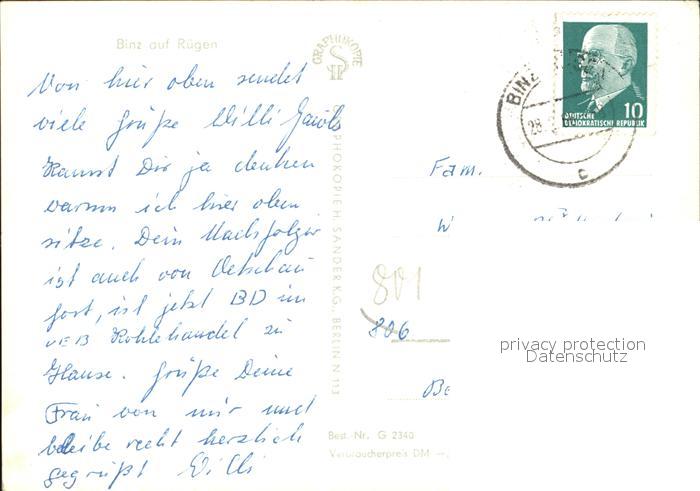 Binz auf Rügen
Von hier oben sendet
viele Grüße Willi Jacobs
Kannst Dir ja denken
warum ich hier oben
sitze. Dein Nachfolger
ist auch von Vetschau
fort, ist jetzt BD im
VEB Kohlehandel zu
Hause. Grüße Deine
Frau von mir und
bleibe recht herzlich
gegrüßt Willi
GRAPHOKOPIE
GRAPHOKOPIE H. SANDER K.G., BERLIN N 113
BINZ
28.
c
10
DEUTSCHE
DEMOKRATISCHE REPUBLIK
Fam.
W
801
806
Be
privacy protection
Datenschutz
Best.-Nr. G 2340
Verbraucherpreis DM —,